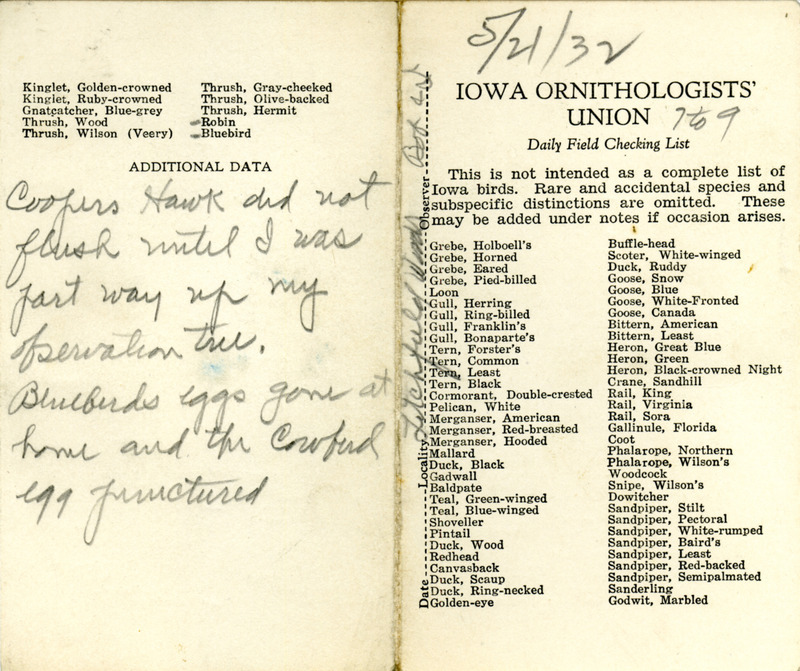 Kinglet, Golden-crowned
Kinglet, Ruby-crowned
Gnatcatcher, Blue-grey
Thrush, Wood
Thrush, Wilson (Veery)
Thrush, Gray-cheeked
Thrush, Olive-backed
Thrush, Hermit
Robin
Bluebird
ADDITIONAL DATA
Coopers Hawk did not
flush until I was
part way up my
opservation tree.
Bluebirds eggs gone at
home and the Cowbird
egg punctured
5/21/32
IOWA ORNITHOLOGISTS'
UNION 7 to 9
Daily Field Checking List
This is not intended as a complete list of
Iowa birds. Rare and accidental species and
subspecific distinctions are omitted. These
may be added under notes if occasion arises.
Date Locality Observer
Grebe, Holboell's
Grebe, Horned
Grebe, Eared
Grebe, Pied-billed
Loon
Gull, Herring
Gull, Ring-billed
Gull, Franklin's
Gull, Bonaparte's
Tern, Forster's
Tern, Common
Tern, Least
Tern, Black
Cormorant, Double-crested
Pelican, White
Merganser, American
Merganser, Red-breasted
Merganser, Hooded
Mallard
Duck, Black
Gadwall
Baldpate
Teal, Green-winged
Teal, Blue-winged
Shoveller
Pintail
Duck, Wood
Redhead
Canvasback
Duck, Scaup
Duck, Ring-necked
Golden-eye
Buffle-head
Scoter, White-winged
Duck, Ruddy
Goose, Snow
Goose, Blue
Goose, White-Fronted
Goose, Canada
Bittern, American
Bittern, Least
Heron, Great Blue
Heron, Green
Heron, Black-crowned Night
Crane, Sandhill
Rail, King
Rail, Virginia
Rail, Sora
Gallinule, Florida
Coot
Phalarope, Northern
Phalarope, Wilson's
Woodcock
Snipe, Wilson's
Dowitcher
Sandpiper, Stilt
Sandpiper, Pectoral
Sandpiper, White-rumped
Sandpiper, Baird's
Sandpiper, Least
Sandpiper, Red-backed
Sandpiper, Semipalmated
Sanderling
Godwit, Marbled